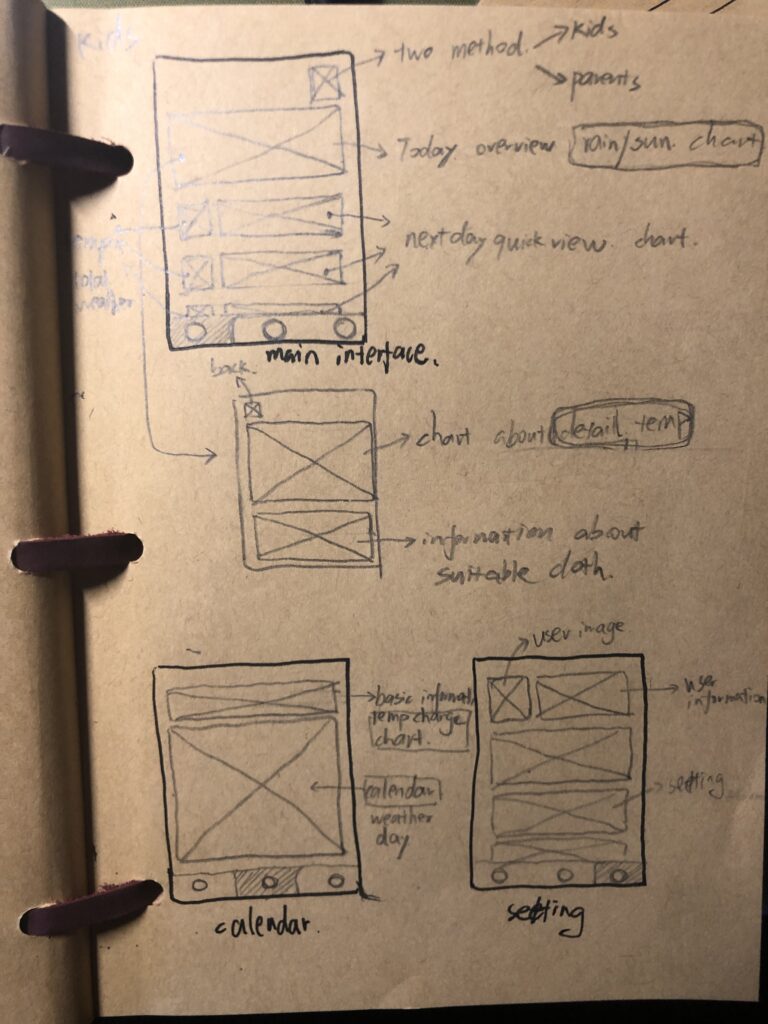 kids
two method.
kids
parents
Today overview rain/sun. chart
next day quick view. chart.
weather
main interface.
back.
chart about detail temp
information about
suitable cloth.
user image
basic informati
temp change
chart.
user
information
calendar
weather
day
setting
calendar.
setting